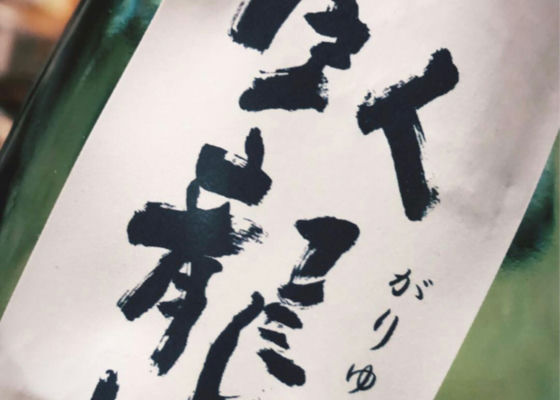 臥龍
がりゅ